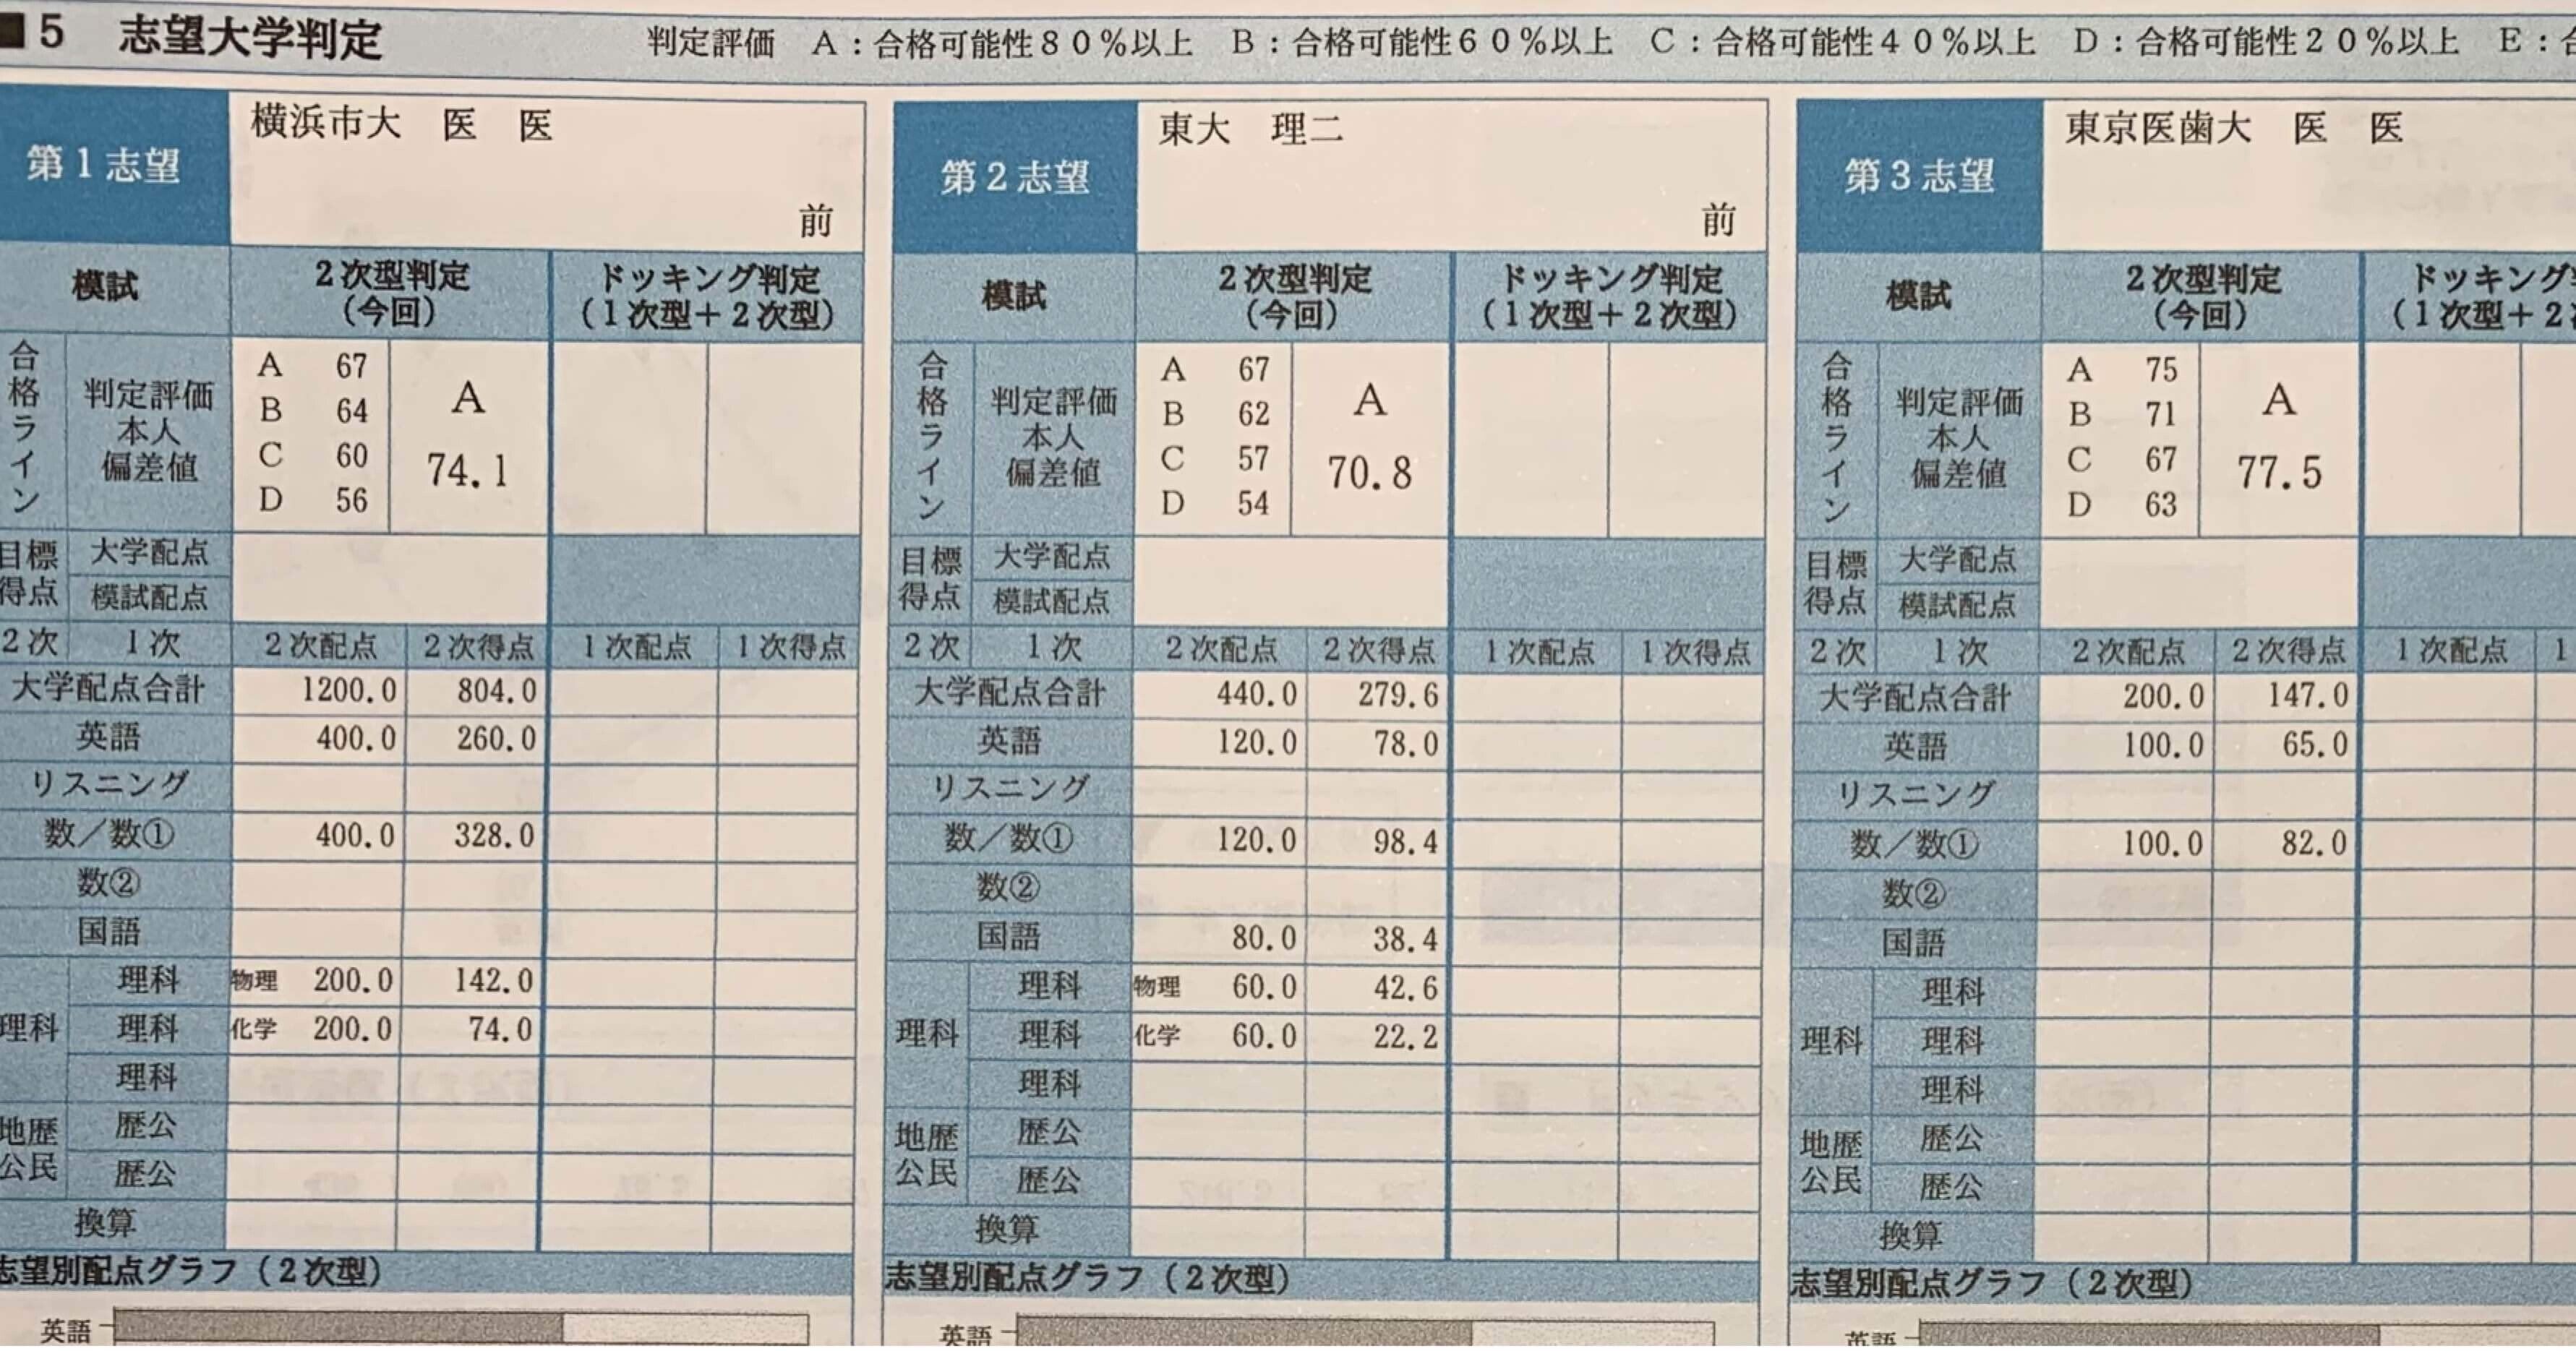 ■5 志望大学判定
判定評価 A：合格可能性80％以上 B：合格可能性60％以上 C：合格可能性40％以上 D：合格可能性20％以上 E：
第1志望 横浜市大 医 医
前
模試 2次型判定（今回） ドッキング判定（1次型＋2次型）
合格ライン 判定評価 本人 偏差値
A 67
B 64
C 60
D 56
A
74.1
目標得点 大学配点
模試配点
2次 1次 2次配点 2次得点 1次配点 1次得点
大学配点合計 1200.0 804.0
英語 400.0 260.0
リスニング
数／数① 400.0 328.0
数②
国語
理科 理科 物理 200.0 142.0
理科 化学 200.0 74.0
理科
地歴公民 歴公
歴公
換算
志望別配点グラフ（2次型）
英語
第2志望 東大 理二
前
模試 2次型判定（今回） ドッキング判定（1次型＋2次型）
合格ライン 判定評価 本人 偏差値
A 67
B 62
C 57
D 54
A
70.8
目標得点 大学配点
模試配点
2次 1次 2次配点 2次得点 1次配点 1次得点
大学配点合計 440.0 279.6
英語 120.0 78.0
リスニング
数／数① 120.0 98.4
数②
国語 80.0 38.4
理科 理科 物理 60.0 42.6
理科 化学 60.0 22.2
理科
地歴公民 歴公
歴公
換算
志望別配点グラフ（2次型）
英語
第3志望 東京医歯大 医 医
模試 2次型判定（今回） ドッキング
（1次型＋2
合格ライン 判定評価 本人 偏差値
A 75
B 71
C 67
D 63
A
77.5
目標得点 大学配点
模試配点
2次 1次 2次配点 2次得点 1次配点 1
大学配点合計 200.0 147.0
英語 100.0 65.0
リスニング
数／数① 100.0 82.0
数②
国語
理科 理科
理科
理科
地歴公民 歴公
歴公
換算
志望別配点グラフ（2次型）
英語